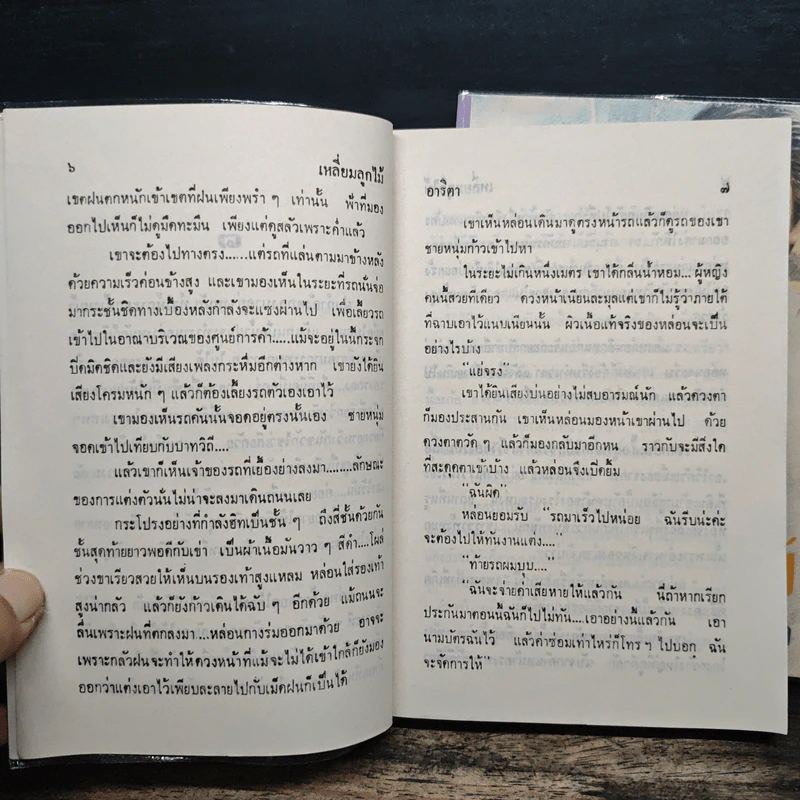 ๖ เหลี่ยมลูกไม้
เขตฝนตกหนักเข้าเขตที่ฝนเพียงพรำ ๆ เท่านั้น ฟ้าที่มอง
ออกไปเห็นก็ไม่ดูมืดทะมึน เพียงแต่ดูสลัวเพราะค่ำแล้ว
เขาจะต้องไปทางตรง......แต่รถที่แล่นตามมาข้างหลัง
ด้วยความเร็วค่อนข้างสูง และเขามองเห็นในระยะที่รถนั่นจ่อ
มากระชั้นชิดทางเบื้องหลังกำลังจะแซงผ่านไป เพื่อเลี้ยวรถ
เข้าไปในอาณาบริเวณของศูนย์การค้า.....แม้จะอยู่ในนี้กระจก
ปิดมิดชิดและยังมีเสียงเพลงกระหึ่มอีกต่างหาก เขายังได้ยิน
เสียงโครมหนัก ๆ แล้วก็ต้องเลี้ยงรถตัวเองเอาไว้
เขามองเห็นรถคันนั้นจอดอยู่ตรงนั้นเอง ชายหนุ่ม
จอดเข้าไปเทียบกับบาทวิถี....
แล้วเขาก็เห็นเจ้าของรถที่เยื้องย่างลงมา.........ลักษณะ
ของการแต่งตัวนั่นไม่น่าจะลงมาเดินถนนเลย
กระโปรงอย่างที่กำลังฮิตเป็นชั้น ๆ ถึงสี่ชั้นด้วยกัน
ชั้นสุดท้ายยาวพอดีกับเข่า เป็นผ้าเนื้อมันวาว ๆ สีดำ....โผล่
ช่วงขาเรียวสวยให้เห็นบนรองเท้าสูงแหลม หล่อนใส่รองเท้า
สูงน่ากลัว แล้วก็ยังก้าวเดินได้ฉับ ๆ อีกด้วย แม้ถนนจะ
ลื่นเพราะฝนที่ตกลงมา...หล่อนกางร่มออกมาด้วย อาจจะ
เพราะกลัวฝนจะทำให้ดวงหน้าที่แม้จะไม่ได้เข้าใกล้ก็ยังมอง
ออกว่าแต่งเอาไว้เพียบละลายไปกับเม็ดฝนก็เป็นได้
อาริตา ๗
เขาเห็นหล่อนเดินมาดูตรงหน้ารถแล้วก็ดูรถของเขา
ชายหนุ่มก้าวเข้าไปหา
ในระยะไม่เกินหนึ่งเมตร เขาได้กลิ่นน้ำหอม... ผู้หญิง
คนนี้สวยทีเดียว ดวงหน้าเนียนละมุลแต่เขาก็ไม่รู้ว่าภายใต้
ที่ฉาบเอาไว้แนบเนียนนั้น ผิวเนื้อแท้จริงของหล่อนจะเป็น
อย่างไรบ้าง
“แย่จริง”
เขาได้ยินเสียงบ่นอย่างไม่สบอารมณ์นัก แล้วดวงตา
ก็มองประสานกัน เขาเห็นหล่อนมองหน้าเขาผ่านไป ด้วย
ดวงตาตวัด ๆ แล้วก็มองกลับมาอีกหน ราวกับจะมีสิ่งใด
ที่สะดุดตาเข้าบ้าง แล้วหล่อนจึงเปิดยิ้ม
“ฉันผิด”
หล่อนยอมรับ “รถมาเร็วไปหน่อย ฉันรีบน่ะค่ะ
จะต้องไปให้ทันงานแต่ง....”
“ท้ายรถผมบุบ....”
“ฉันจะจ่ายค่าเสียหายให้แล้วกัน นี่ถ้าหากเรียก
ประกันมาตอนนี้ฉันก็ไปไม่ทัน....เอาอย่างนี้แล้วกัน เอา
นามบัตรฉันไว้ แล้วค่าซ่อมเท่าไหร่ก็โทร ฯ ไปบอก ฉัน
จะจัดการให้”